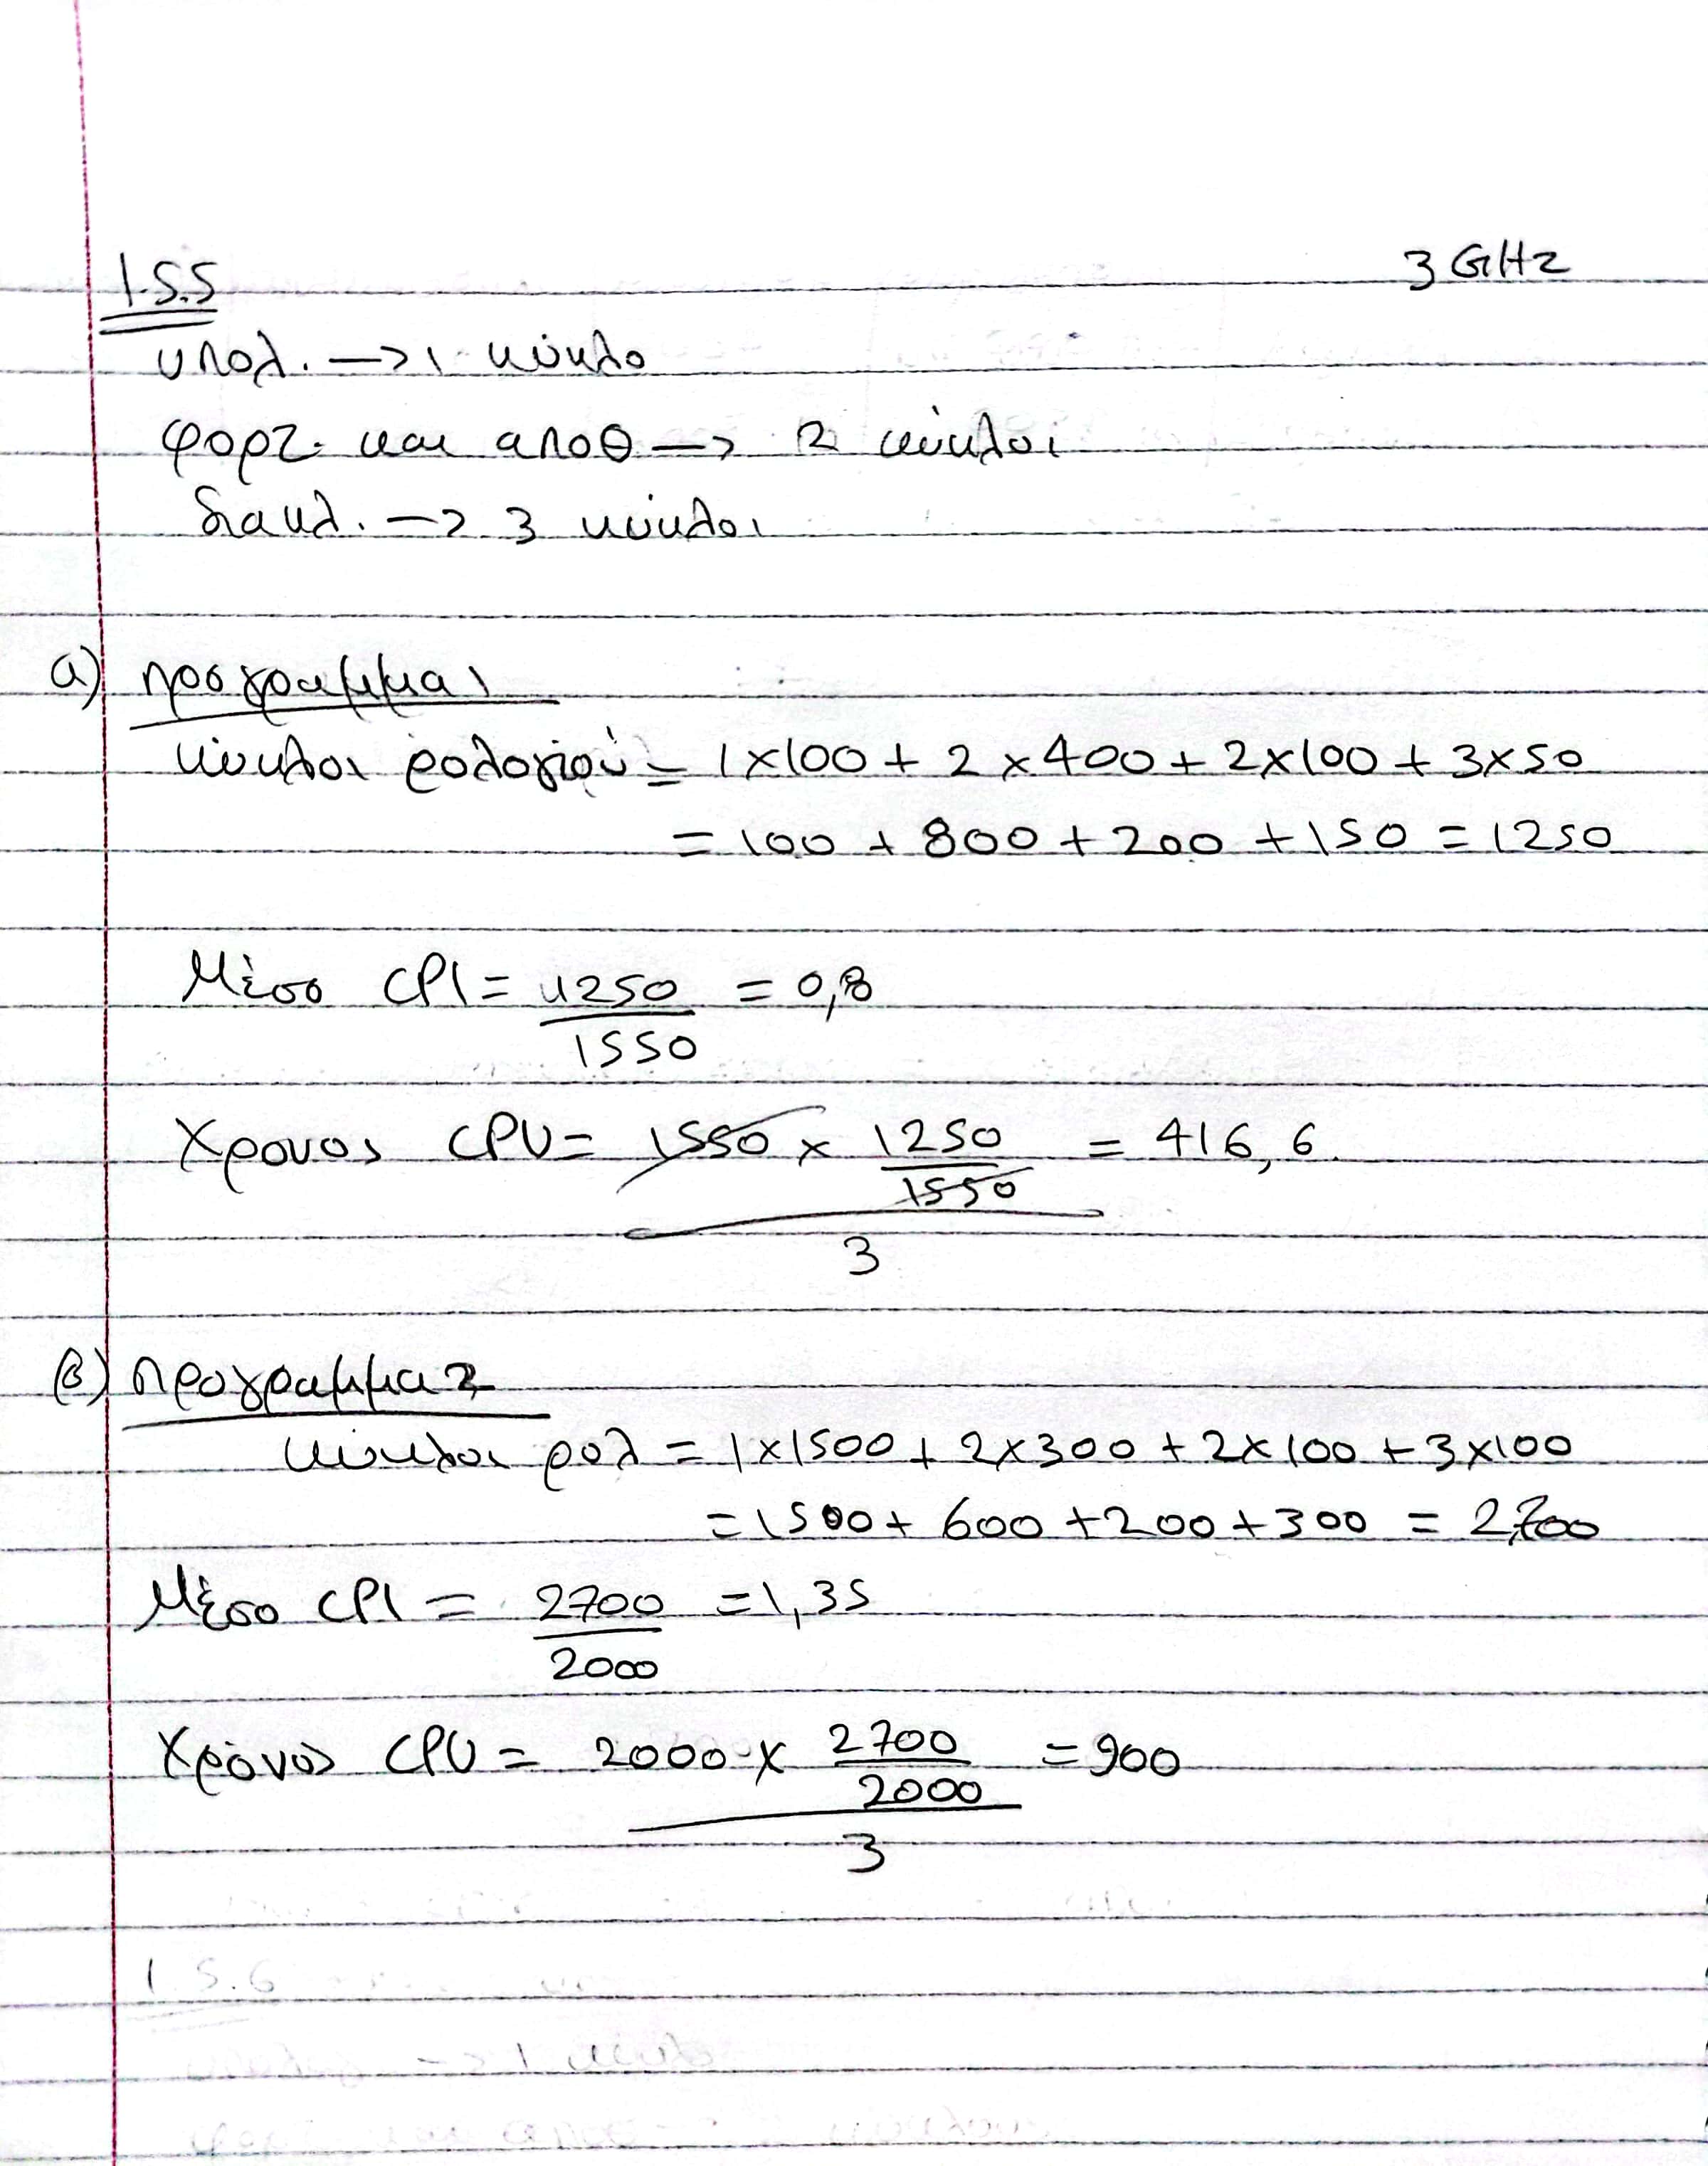 1.5.5
3 GHz
υπολ. —> 1 κύκλο
φορτ. και αποθ —> 2 κύκλοι
διακλ. —> 3 κύκλοι
α) προγραμμα 1
κύκλοι ρολογιού = 1x100 + 2x400 + 2x100 + 3x50
= 100 + 800 + 200 + 150 = 1250
Μέσο CPI = 1250 / 1550 = 0,8
Χρονος CPU = 1550 x 1250 / 1550 / 3 = 416,6
β) προγραμμα 2
κύκλοι ρολ = 1x1500 + 2x300 + 2x100 + 3x100
= 1500 + 600 + 200 + 300 = 2700
Μέσο CPI = 2700 / 2000 = 1,35
Χρόνος CPU = 2000 x 2700 / 2000 / 3 = 900
1.5.6